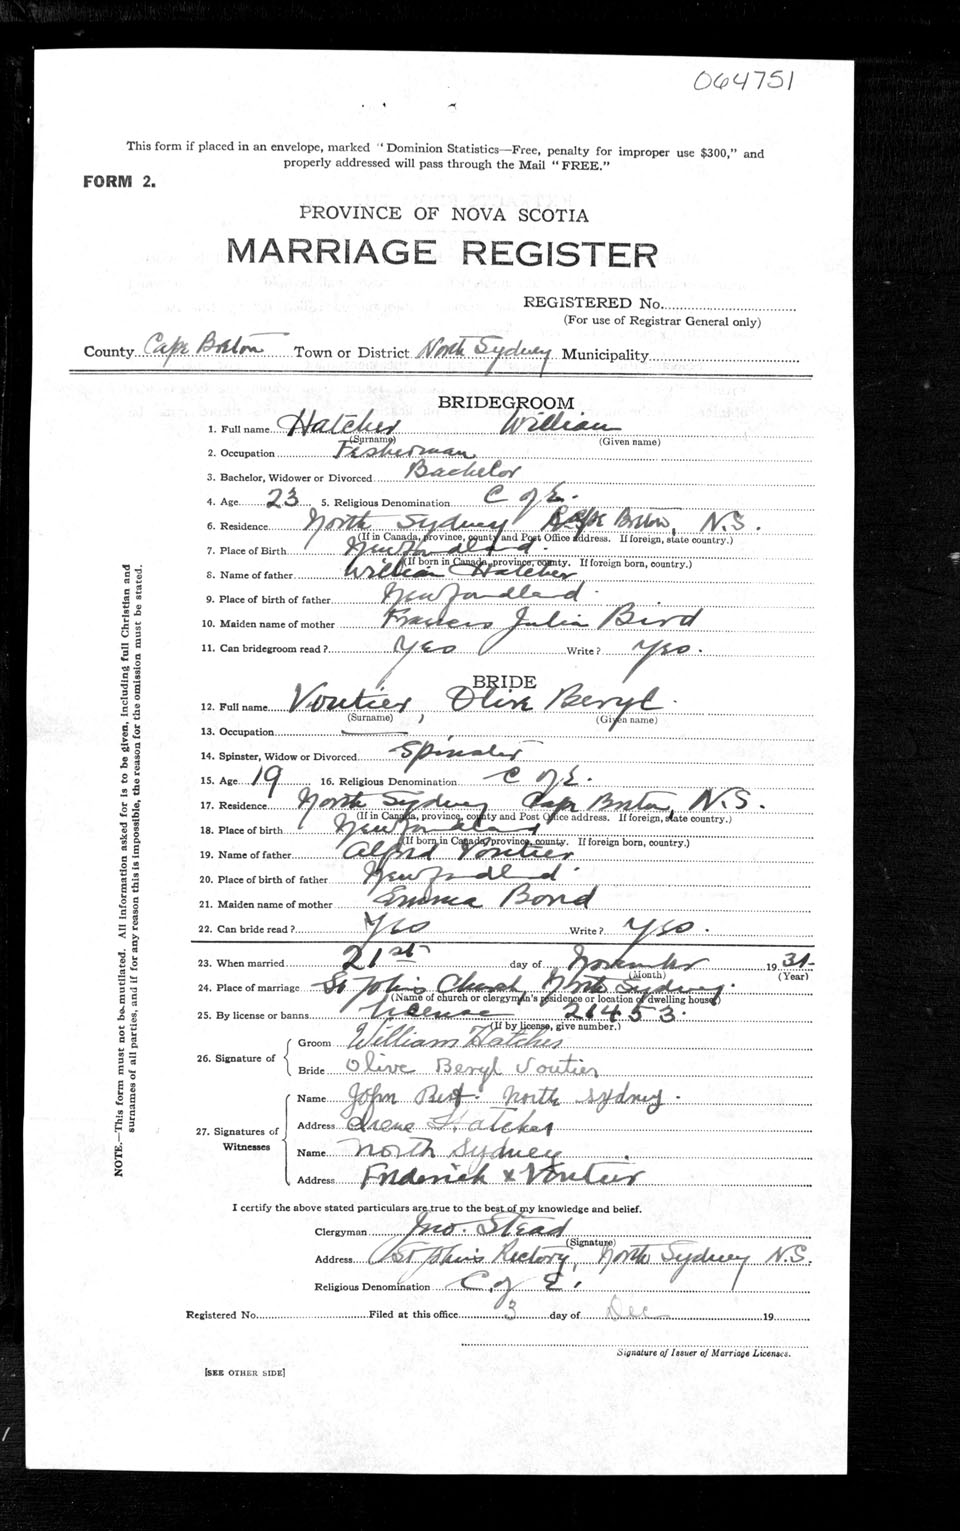 064751
This form if placed in an envelope, marked "Dominion Statistics—Free, penalty for improper use $300," and
properly addressed will pass through the Mail "FREE."
FORM 2.
PROVINCE OF NOVA SCOTIA
MARRIAGE REGISTER
REGISTERED No.
(For use of Registrar General only)
County Cape Breton Town or District North Sydney Municipality
BRIDEGROOM
1. Full name Hatcher William
(Surname) (Given name)
2. Occupation Fisherman
3. Bachelor, Widower or Divorced Bachelor
4. Age 23 5. Religious Denomination C of E.
6. Residence North Sydney Cape Breton, N.S.
(If in Canada, province, county and Post Office address. If foreign, state country.)
7. Place of Birth Newfoundland.
(If born in Canada, province, county. If foreign born, country.)
8. Name of father William Hatcher
9. Place of birth of father Newfoundland.
10. Maiden name of mother Frances Julia Bird
11. Can bridegroom read? Yes Write? Yes.
BRIDE
12. Full name Voutier Olive Beryl.
(Surname) (Given name)
13. Occupation
14. Spinster, Widow or Divorced Spinster
15. Age 19 16. Religious Denomination C of E.
17. Residence North Sydney Cape Breton, N.S.
(If in Canada, province, county and Post Office address. If foreign, state country.)
18. Place of birth Newfoundland
(If born in Canada, province, county. If foreign born, country.)
19. Name of father Alfred Voutier
20. Place of birth of father Newfoundland.
21. Maiden name of mother Emma Bond
22. Can bride read? Yes Write? Yes.
23. When married 21st day of November 1931
(Month) (Year)
24. Place of marriage St John's Church, North Sydney.
(Name of church or clergyman's residence or location of dwelling house)
25. By license or banns License 21453.
(If by license, give number.)
26. Signature of
Groom William Hatcher
Bride Olive Beryl Voutier
27. Signatures of Witnesses
Name John Best. North Sydney.
Address Irene Hatcher
Name North Sydney.
Address Frederick x Voutier
I certify the above stated particulars are true to the best of my knowledge and belief.
Clergyman Jno. Stead
(Signature)
Address St John's Rectory, North Sydney N.S.
Religious Denomination C. of E.
Registered No. Filed at this office 3 day of Dec 19
Signature of Issuer of Marriage Licenses.
[SEE OTHER SIDE]
NOTE.—This form must not be mutilated. All information asked for is to be given, including full Christian and
surnames of all parties, and if for any reason this is impossible, the reason for the omission must be stated.